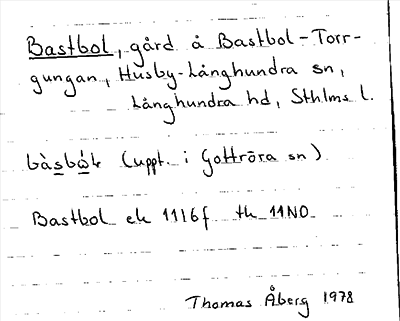 Bastbol, gård å Bastbol-Torr-
gungan, Husby-Långhundra sn,
Långhundra hd, Sthlms l.
(uppt. i Gottröra sn)
Bastbol ek 11I6f tk 11NO
Thomas Åberg 1978